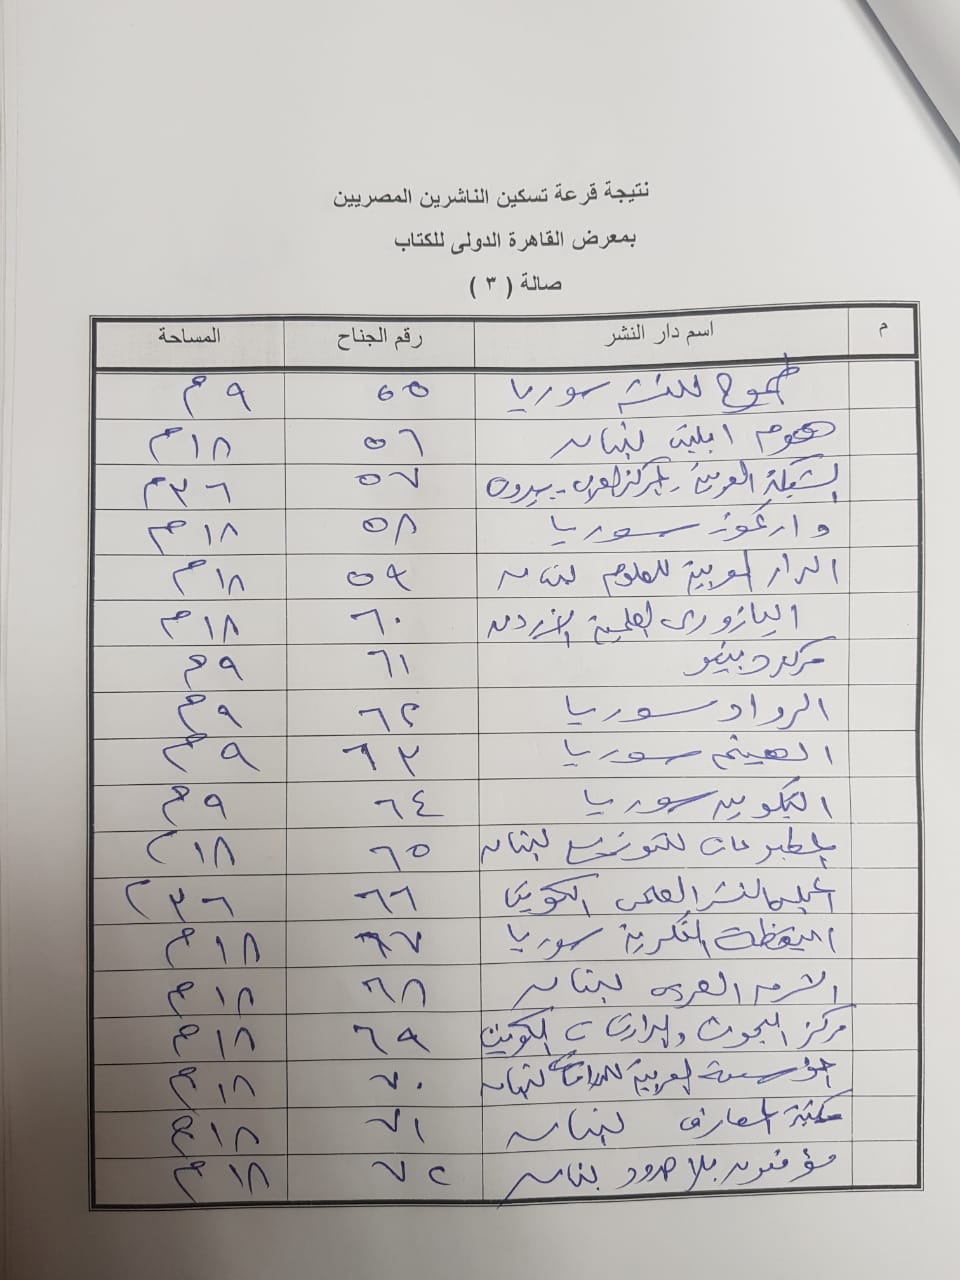 نتيجة قرعة تسكين الناشرين المصريين
بمعرض القاهرة الدولى للكتاب
صالة ( ٣ )
م اسم دار النشر رقم الجناح المساحة
طموح للنشر سوريا ٥٥ ٩م
هموم لبنان ٥٦ ١٨م
الشبكة العربية - المركز العربى - بيروت ٥٧ ٣٦م
سوريا ٥٨ ١٨م
الدار العربية للعلوم لبنان ٥٩ ١٨م
اليازورى العلمية الأردن ٦٠ ١٨م
٦١ ٩م
الرواد سوريا ٦٢ ٩م
الهيثم سوريا ٦٣ ٩م
التكوين سوريا ٦٤ ٩م
المطبوعات للتوزيع لبنان ٦٥ ١٨م
النشر العلمى الكويت ٦٦ ٣٦م
اليقظة الفكرية سوريا ٦٧ ١٨م
العربى لبنان ٦٨ ١٨م
مركز البحوث والدراسات الكويت ٦٩ ١٨م
المؤسسة العربية للدراسات لبنان ٧٠ ١٨م
مكتبة المعارف لبنان ٧١ ١٨م
مؤمنون بلا حدود لبنان ٧٢ ١٨م